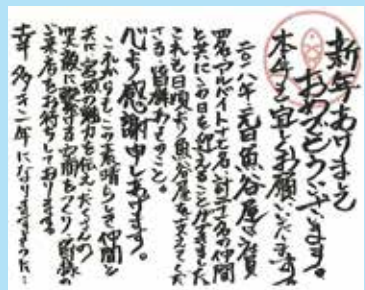 新年あけまして
おめでとうございます。
本年も宜しくお願いいたします。
二〇一八年、元旦魚谷屋は社員
四名、アルバイト十七名、計二十一名の仲間
と共にこの日を迎えることができました
これも日頃より魚谷屋を支えてくだ
さる、皆様あってのこと。
心より感謝申しあげます。
これからもこの素晴らしき仲間と
共に宮城の魅力を伝え、たくさんの
笑顔に繋がる空間をつくり、皆様の
ご来店をお待ちしております。
幸多き一年になりますように